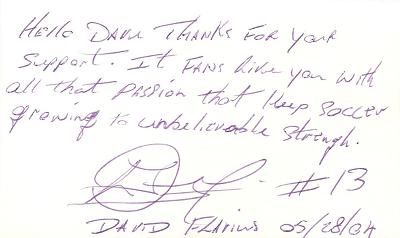 Hello Dave Thanks For your
Support. It Fans like you with
all that passion that keep soccer
growing to unbelievable strengh.
#13
David Flavius 05/28/04